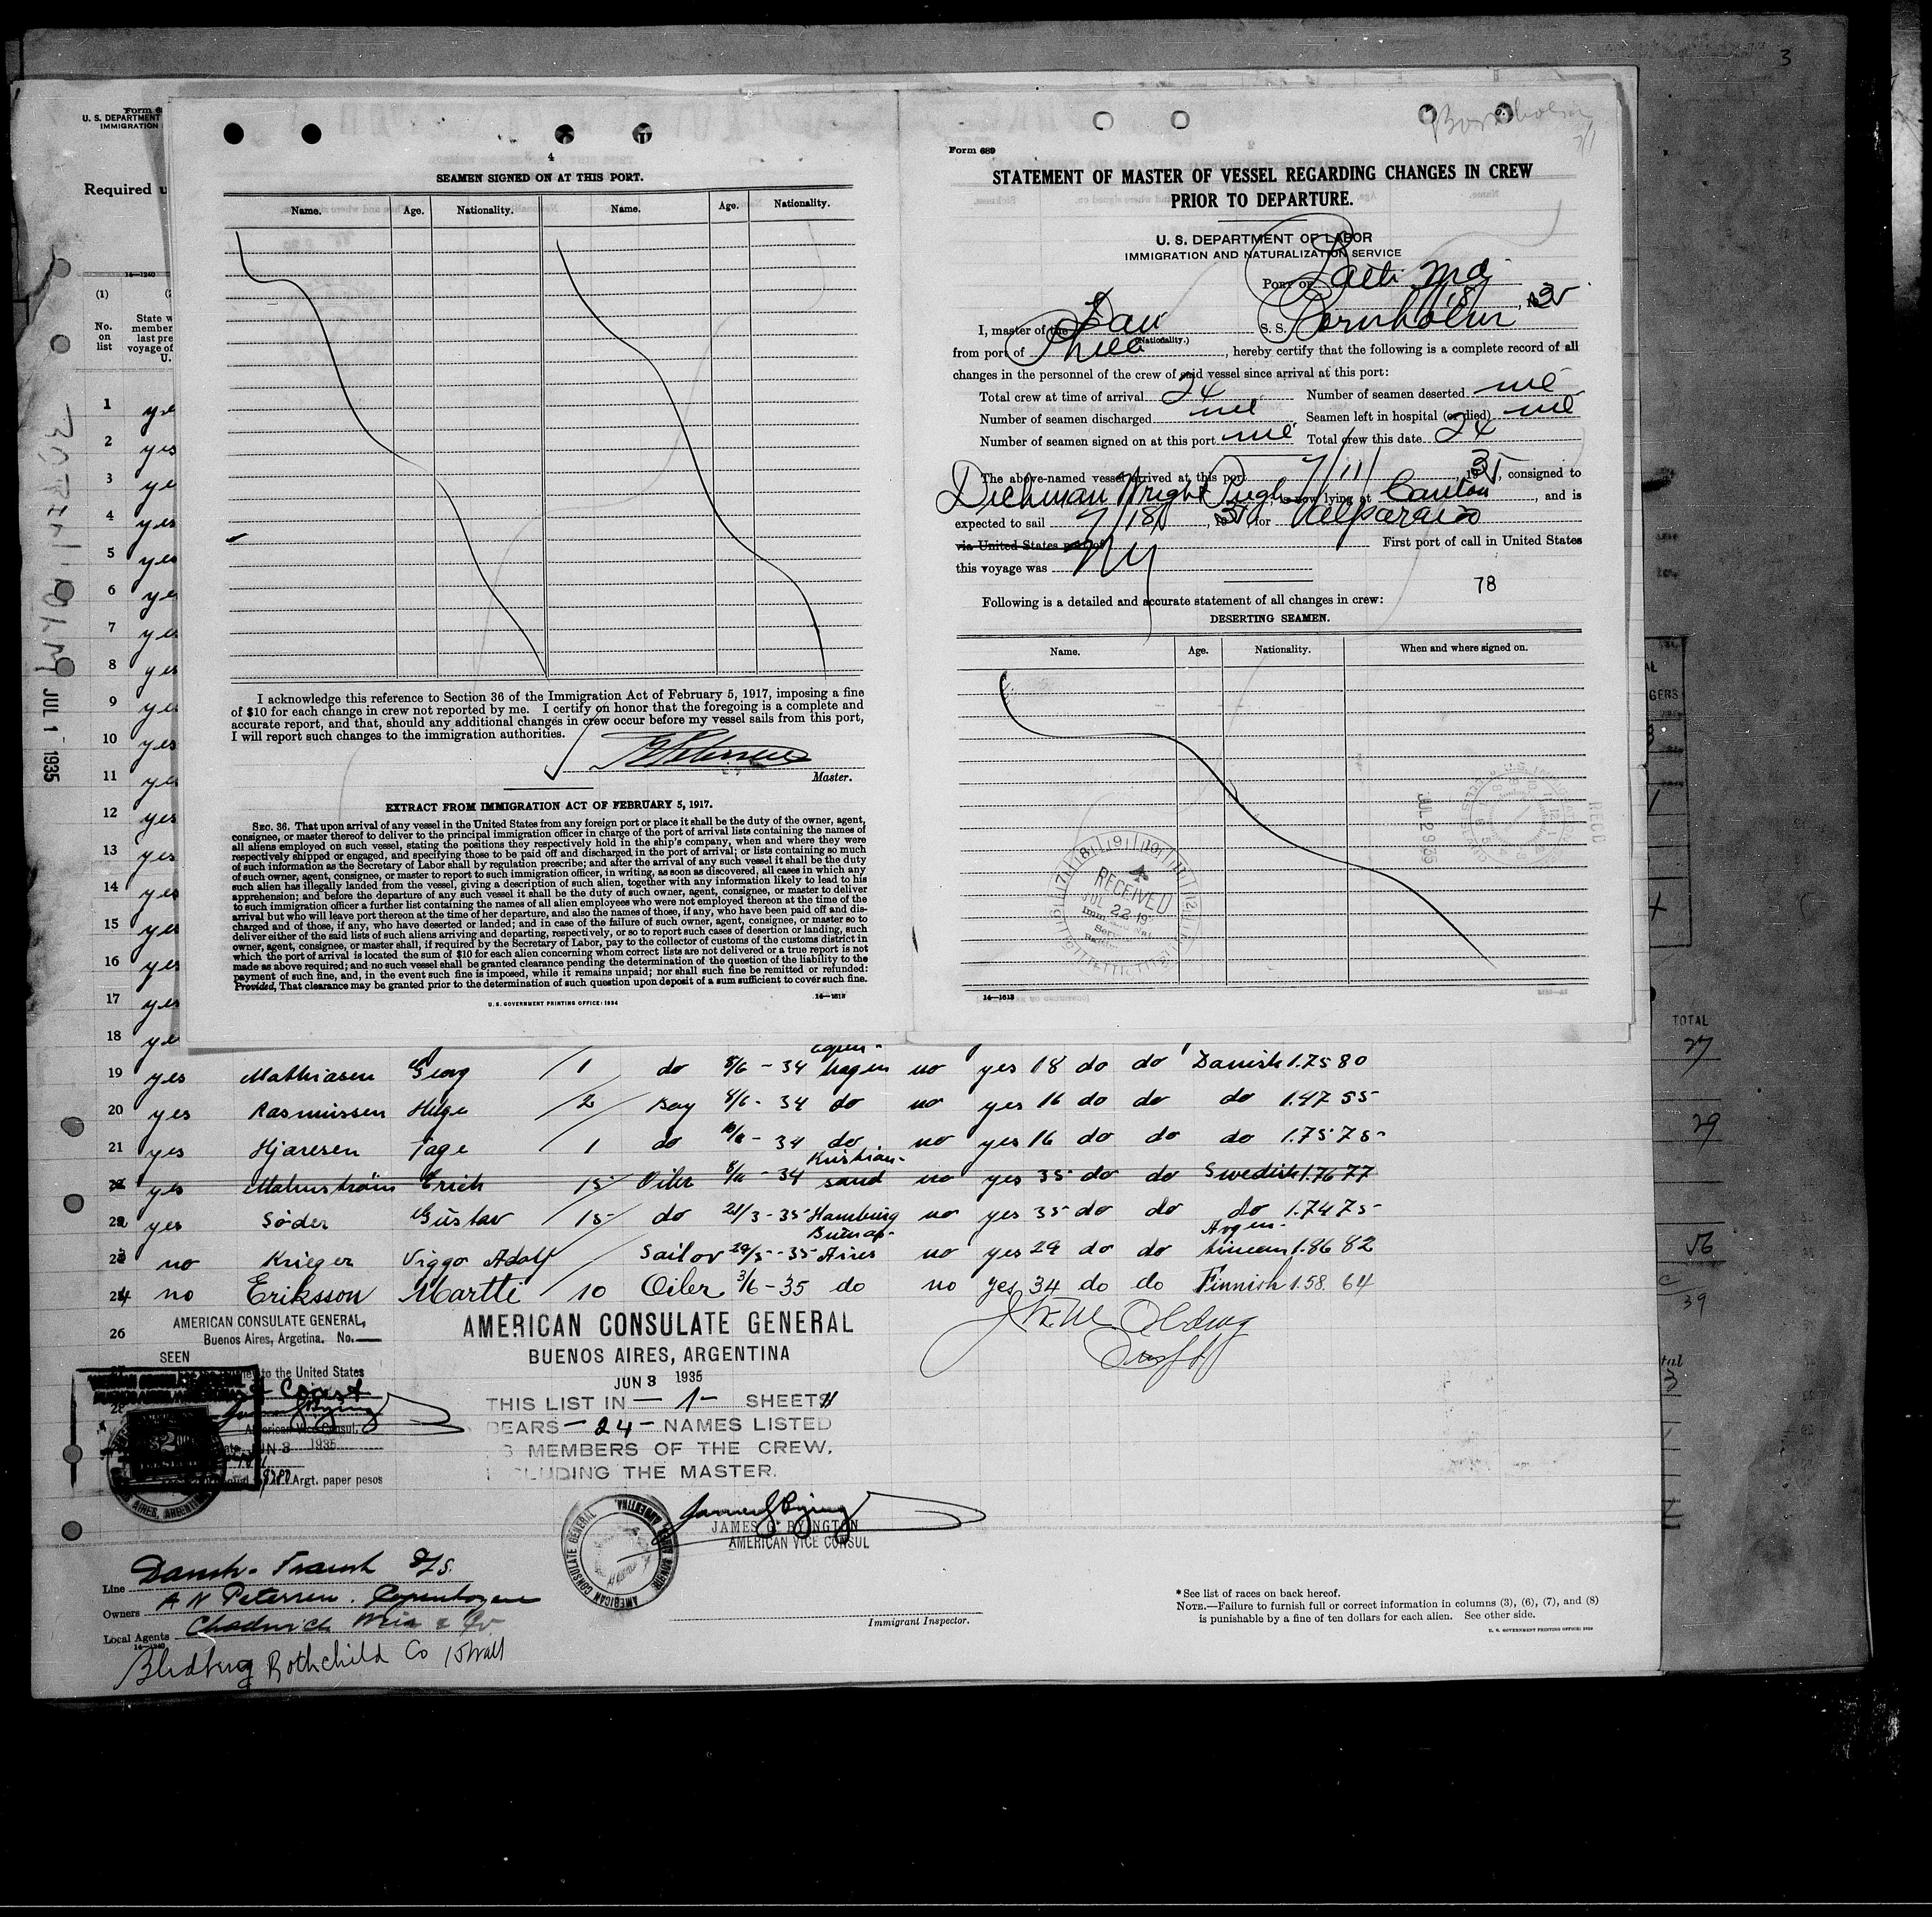 3
Form 6
U. S. DEPARTMENT
IMMIGRATION
Required u
14—1240
(1)
No.
on
list
State w
member
last pre
voyage of
U.
1 yes
2 yes
3 yes
4 yes
5 yes
6 yes
7 yes
8 yes
9 yes
10 yes
11 yes
12 yes
13 yes
14 yes
15 yes
16 yes
17 yes
18 yes
JUL 1 1935
4
SEAMEN SIGNED ON AT THIS PORT.
Name. Age. Nationality. Name. Age. Nationality.
I acknowledge this reference to Section 36 of the Immigration Act of February 5, 1917, imposing a fine
of $10 for each change in crew not reported by me. I certify on honor that the foregoing is a complete and
accurate report, and that, should any additional changes in crew occur before my vessel sails from this port,
I will report such changes to the immigration authorities.
Petersen
Master.
EXTRACT FROM IMMIGRATION ACT OF FEBRUARY 5, 1917.
SEC. 36. That upon arrival of any vessel in the United States from any foreign port or place it shall be the duty of the owner, agent,
consignee, or master thereof to deliver to the principal immigration officer in charge of the port of arrival lists containing the names of
all aliens employed on such vessel, stating the positions they respectively hold in the ship's company, when and where they were
respectively shipped or engaged, and specifying those to be paid off and discharged in the port of arrival; or lists containing so much
of such information as the Secretary of Labor shall by regulation prescribe; and after the arrival of any such vessel it shall be the duty
of such owner, agent, consignee, or master to report to such immigration officer, in writing, as soon as discovered, all cases in which any
such alien has illegally landed from the vessel, giving a description of such alien, together with any information likely to lead to his
apprehension; and before the departure of any such vessel it shall be the duty of such owner, agent, consignee, or master to deliver
to such immigration officer a further list containing the names of all alien employees who were not employed thereon at the time of the
arrival but who will leave port thereon at the time of her departure, and also the names of those, if any, who have been paid off and dis-
charged and of those, if any, who have deserted or landed; and in case of the failure of such owner, agent, consignee, or master so to
deliver either of the said lists of such aliens arriving and departing, respectively, or so to report such cases of desertion or landing, such
owner, agent, consignee, or master shall, if required by the Secretary of Labor, pay to the collector of customs of the customs district in
which the port of arrival is located the sum of $10 for each alien concerning whom correct lists are not delivered or a true report is not
made as above required; and no such vessel shall be granted clearance pending the determination of the question of the liability to the
payment of such fine, and, in the event such fine is imposed, while it remains unpaid; nor shall such fine be remitted or refunded:
Provided, That clearance may be granted prior to the determination of such question upon deposit of a sum sufficient to cover such fine.
U. S. GOVERNMENT PRINTING OFFICE: 1934
Bornholm
7/1
Form 689
STATEMENT OF MASTER OF VESSEL REGARDING CHANGES IN CREW
PRIOR TO DEPARTURE.
U. S. DEPARTMENT OF LABOR
IMMIGRATION AND NATURALIZATION SERVICE
PORT OF Balti Md
7/18, 1935
I, master of the Dan S. S. Bornholm
(Nationality.)
from port of Phila, hereby certify that the following is a complete record of all
changes in the personnel of the crew of said vessel since arrival at this port:
Total crew at time of arrival 24 Number of seamen deserted nil
Number of seamen discharged nil Seamen left in hospital (or died) nil
Number of seamen signed on at this port nil Total crew this date 24
The above-named vessel arrived at this port 7/11/ 1935, consigned to
Dichman Wright Pugh, is now lying at Canton, and is
expected to sail 7/18, 1935, for Valparaiso
via United States port of First port of call in United States
this voyage was NY
78
Following is a detailed and accurate statement of all changes in crew:
DESERTING SEAMEN.
Name. Age. Nationality. When and where signed on.
RECEIVED
JUL 22 19
JUL 29 35
RECD
14—1613
19 yes Mathiasen Georg 1 do 8/6 - 34 Copen-hagen no yes 18 do do Danish 1.75 80
20 yes Rasmussen Helge 2 Boy 8/6 - 34 do no yes 16 do do do 1.47 55
21 yes Hjaresen Tage 1 do 10/6 - 34 do no yes 16 do do do 1.75 75
22 yes Malmström Erich 15 Oiler 8/11 - 34 Kristian-sand no yes 35 do do Swedish 1.76 77
22 yes Söder Gustav 15 do 21/3 - 35 Hamburg no yes 35 do do do 1.74 75
23 no Krieger Viggo Adolf Sailor 29/5 - 35 Buenos-Aires no yes 29 do do Argentinean 1.86 82
24 no Eriksson Martti 10 Oiler 3/6 - 35 do no yes 34 do do Finnish 1.58 64
26
AMERICAN CONSULATE GENERAL,
Buenos Aires, Argetina. No.
SEEN
to the United States
Coast
American Vice Consul.
JUN 3 1935
Argt. paper pesos
AMERICAN CONSULATE GENERAL
BUENOS AIRES, ARGENTINA
JUN 3 1935
THIS LIST IN — 1 — SHEETS
BEARS — 24 — NAMES LISTED
AS MEMBERS OF THE CREW,
INCLUDING THE MASTER.
JAMES G. BYINGTON
AMERICAN VICE CONSUL
AMERICAN CONSULATE GENERAL BUENOS AIRES ARGENTINA
Line Dansk-Fransk D/S.
Owners A N Petersen. Copenhagen
Local Agents Chadwick Weir & Co
14—1240
Rothchild Co
Immigrant Inspector.
* See list of races on back hereof.
NOTE.—Failure to furnish full or correct information in columns (3), (6), (7), and (8)
is punishable by a fine of ten dollars for each alien. See other side.
U. S. GOVERNMENT PRINTING OFFICE: 1929
GERS
TOTAL
27
29
56
39